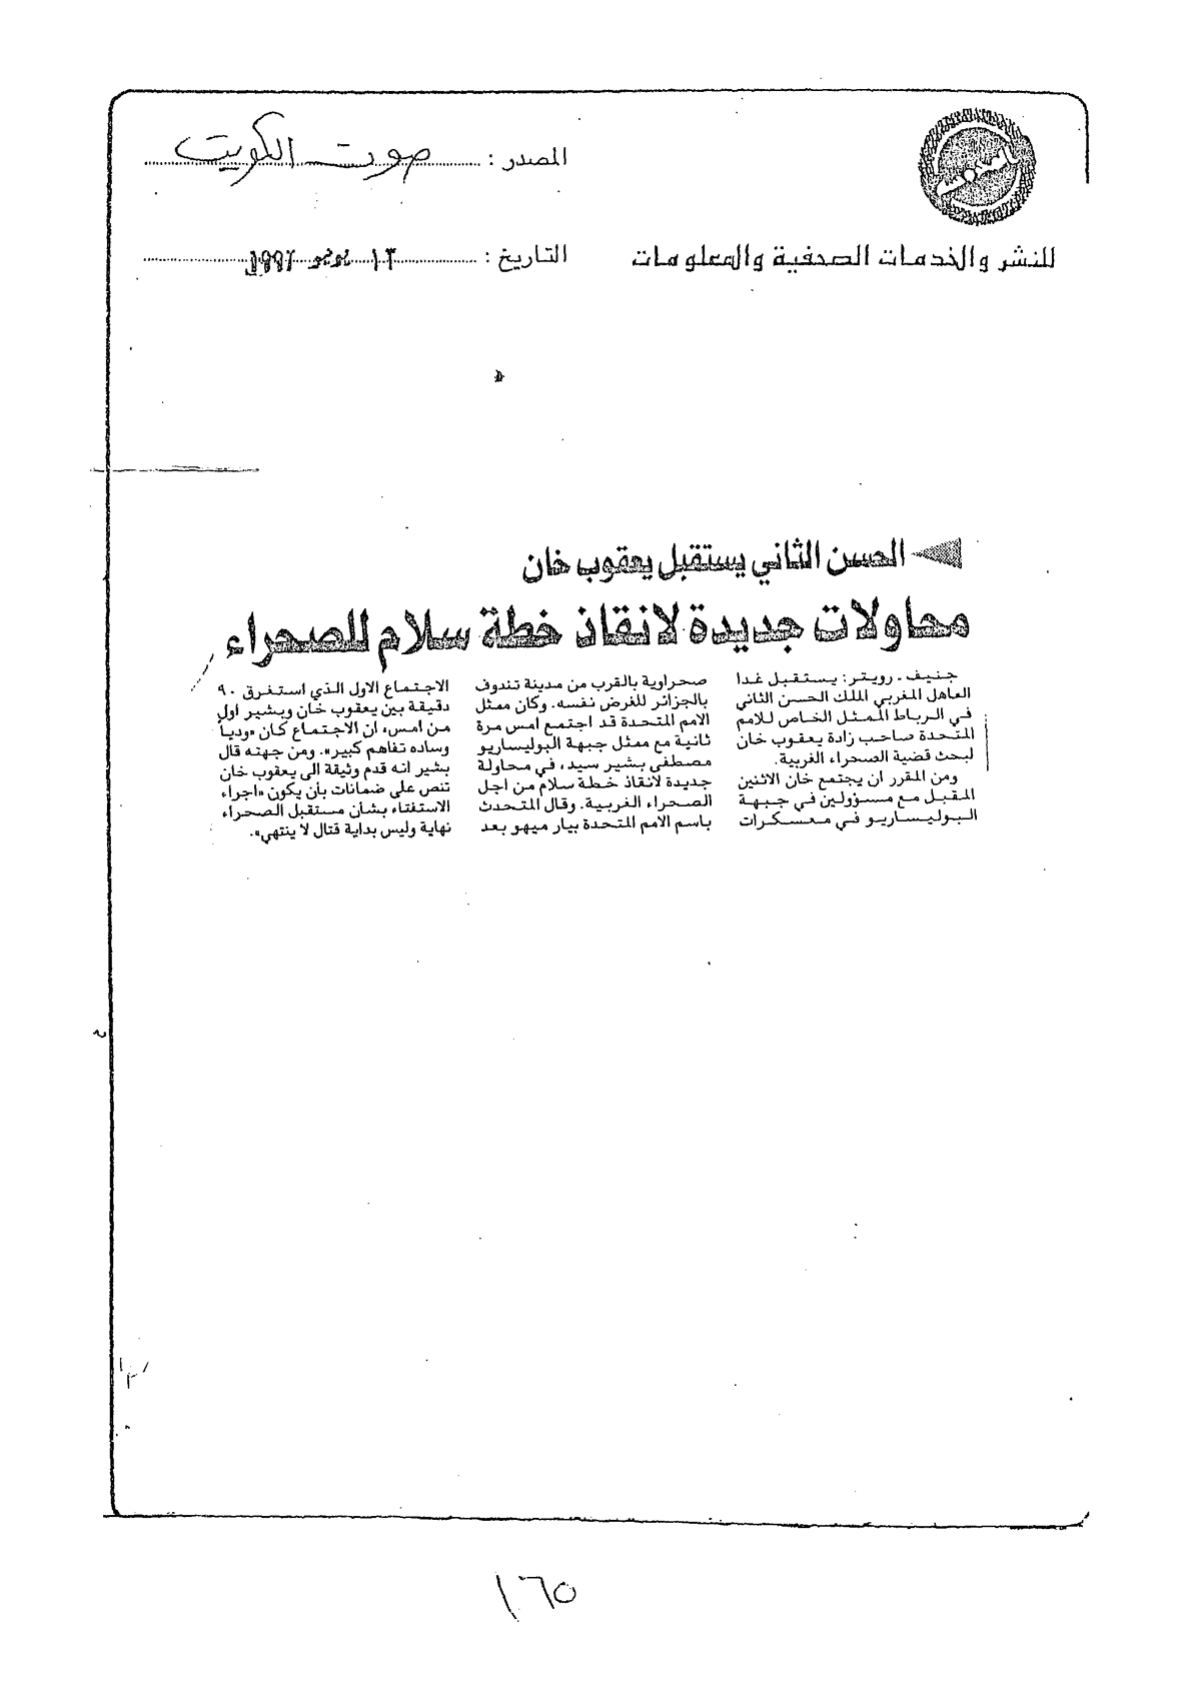 المصدر : صوت الكويت
للنشر والخدمات الصحفية والمعلومات
التاريخ : ١٣ يونيو ١٩٩٢
الحسن الثاني يستقبل يعقوب خان
محاولات جديدة لانقاذ خطة سلام للصحراء
جنيف ـ رويتر: يستقبل غدا
العاهل المغربي الملك الحسن الثاني
في الرباط الممثل الخاص للامم
المتحدة صاحب زادة يعقوب خان
لبحث قضية الصحراء الغربية.
ومن المقرر ان يجتمع خان الاثنين
المقبل مع مسؤولين في جبهة
البوليساريو في معسكرات
صحراوية بالقرب من مدينة تندوف
بالجزائر للغرض نفسه. وكان ممثل
الامم المتحدة قد اجتمع امس مرة
ثانية مع ممثل جبهة البوليساريو
مصطفى بشير سيد، في محاولة
جديدة لانقاذ خطة سلام من اجل
الصحراء الغربية. وقال المتحدث
باسم الامم المتحدة بيار ميهو بعد
الاجتماع الاول الذي استغرق ٩٠
دقيقة بين يعقوب خان وبشير اول
من امس، ان الاجتماع كان «ودياً
وساده تفاهم كبير». ومن جهته قال
بشير انه قدم وثيقة الى يعقوب خان
تنص على ضمانات بأن يكون «اجراء
الاستفتاء بشأن مستقبل الصحراء
نهاية وليس بداية قتال لا ينتهي».
١٦٥